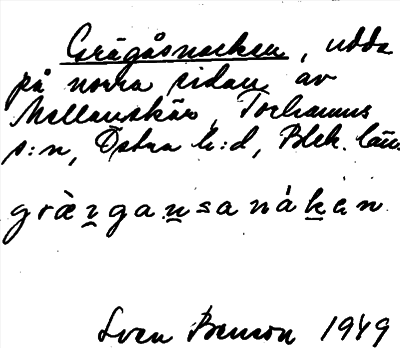 Grågåsnacken, udde
på norra sidan av
Mellanskär, Torhamns
s:n, Östra h:d, Blek. län.
grä̀ṉgaṉsanáḵàn
Sven Benson 1949